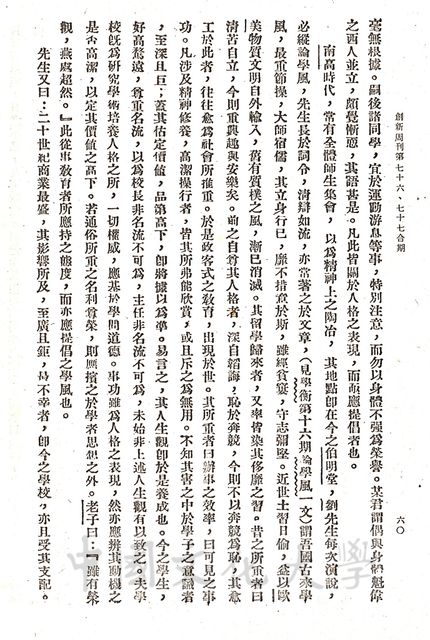 創新周刊第七十六、七十七合期
六〇
毫無根據。嗣後諸同學，宜於運動游息等事，特別注意，而勿以身體不强爲榮譽。某君謂偶與身體魁偉
之西人並立，頗覺慚恧，其語甚是。凡此皆關於人格之表現，而亟應提倡者也。
南高時代，常有全體師生集會，以爲精神上之陶冶，其地點即在今之伯明堂，劉先生每次演說，
必縱論學風，先生長於詞令，清辯如流，亦常著之於文章，（見學衡第十六期論學風一文）謂吾國古來學
風，最重節操，大師宿儒，其立身行已，廉不措意於斯，雖經貧窶，守志彌堅。近世士習日偷，益以歐
美物質文明自外輸入，舊有質樸之風，漸已消滅。其留學歸來者，又率皆染其侈靡之習。昔之所重者曰
清苦自立，今則重興趣與安樂矣。前之自尊其人格者，深自韜晦，恥於奔競，今則不以奔競爲恥，其意
工於此者，往往愈爲社會所推重。於是政客式之敎育，出現於世。其所重者曰辦事之效率，曰可見之事
功。凡涉及精神修養，高潔操行者，皆其所弗能欣賞，或且斥之爲無用。不知其害之中於學子之意識者
，至深且巨；蓋其估定價値，品第高下，即將據以爲準。易言之，其人生觀即於是養成也。今之學生，
好高騖遠，尊重名流，以爲校長非名流不可爲，主任非名流不可爲，未始非上述人生觀有以致之。夫學
校旣爲研究學術培養人格之所，一切權威，應基於學問道德。事功雖爲人格之表現，然亦應辨其動機之
是否高潔，以定其價値之高下。若通俗所重之名利尊榮，則應擯之於學者思想之外。老子曰：『雖有榮
觀，燕處超然。』此從事敎育者所應持之態度，而亦應提倡之學風也。
先生又曰：二十世紀商業最盛，其影響所及，至廣且鉅，最不幸者，即今之學校，亦且受其支配。
中國文化大學